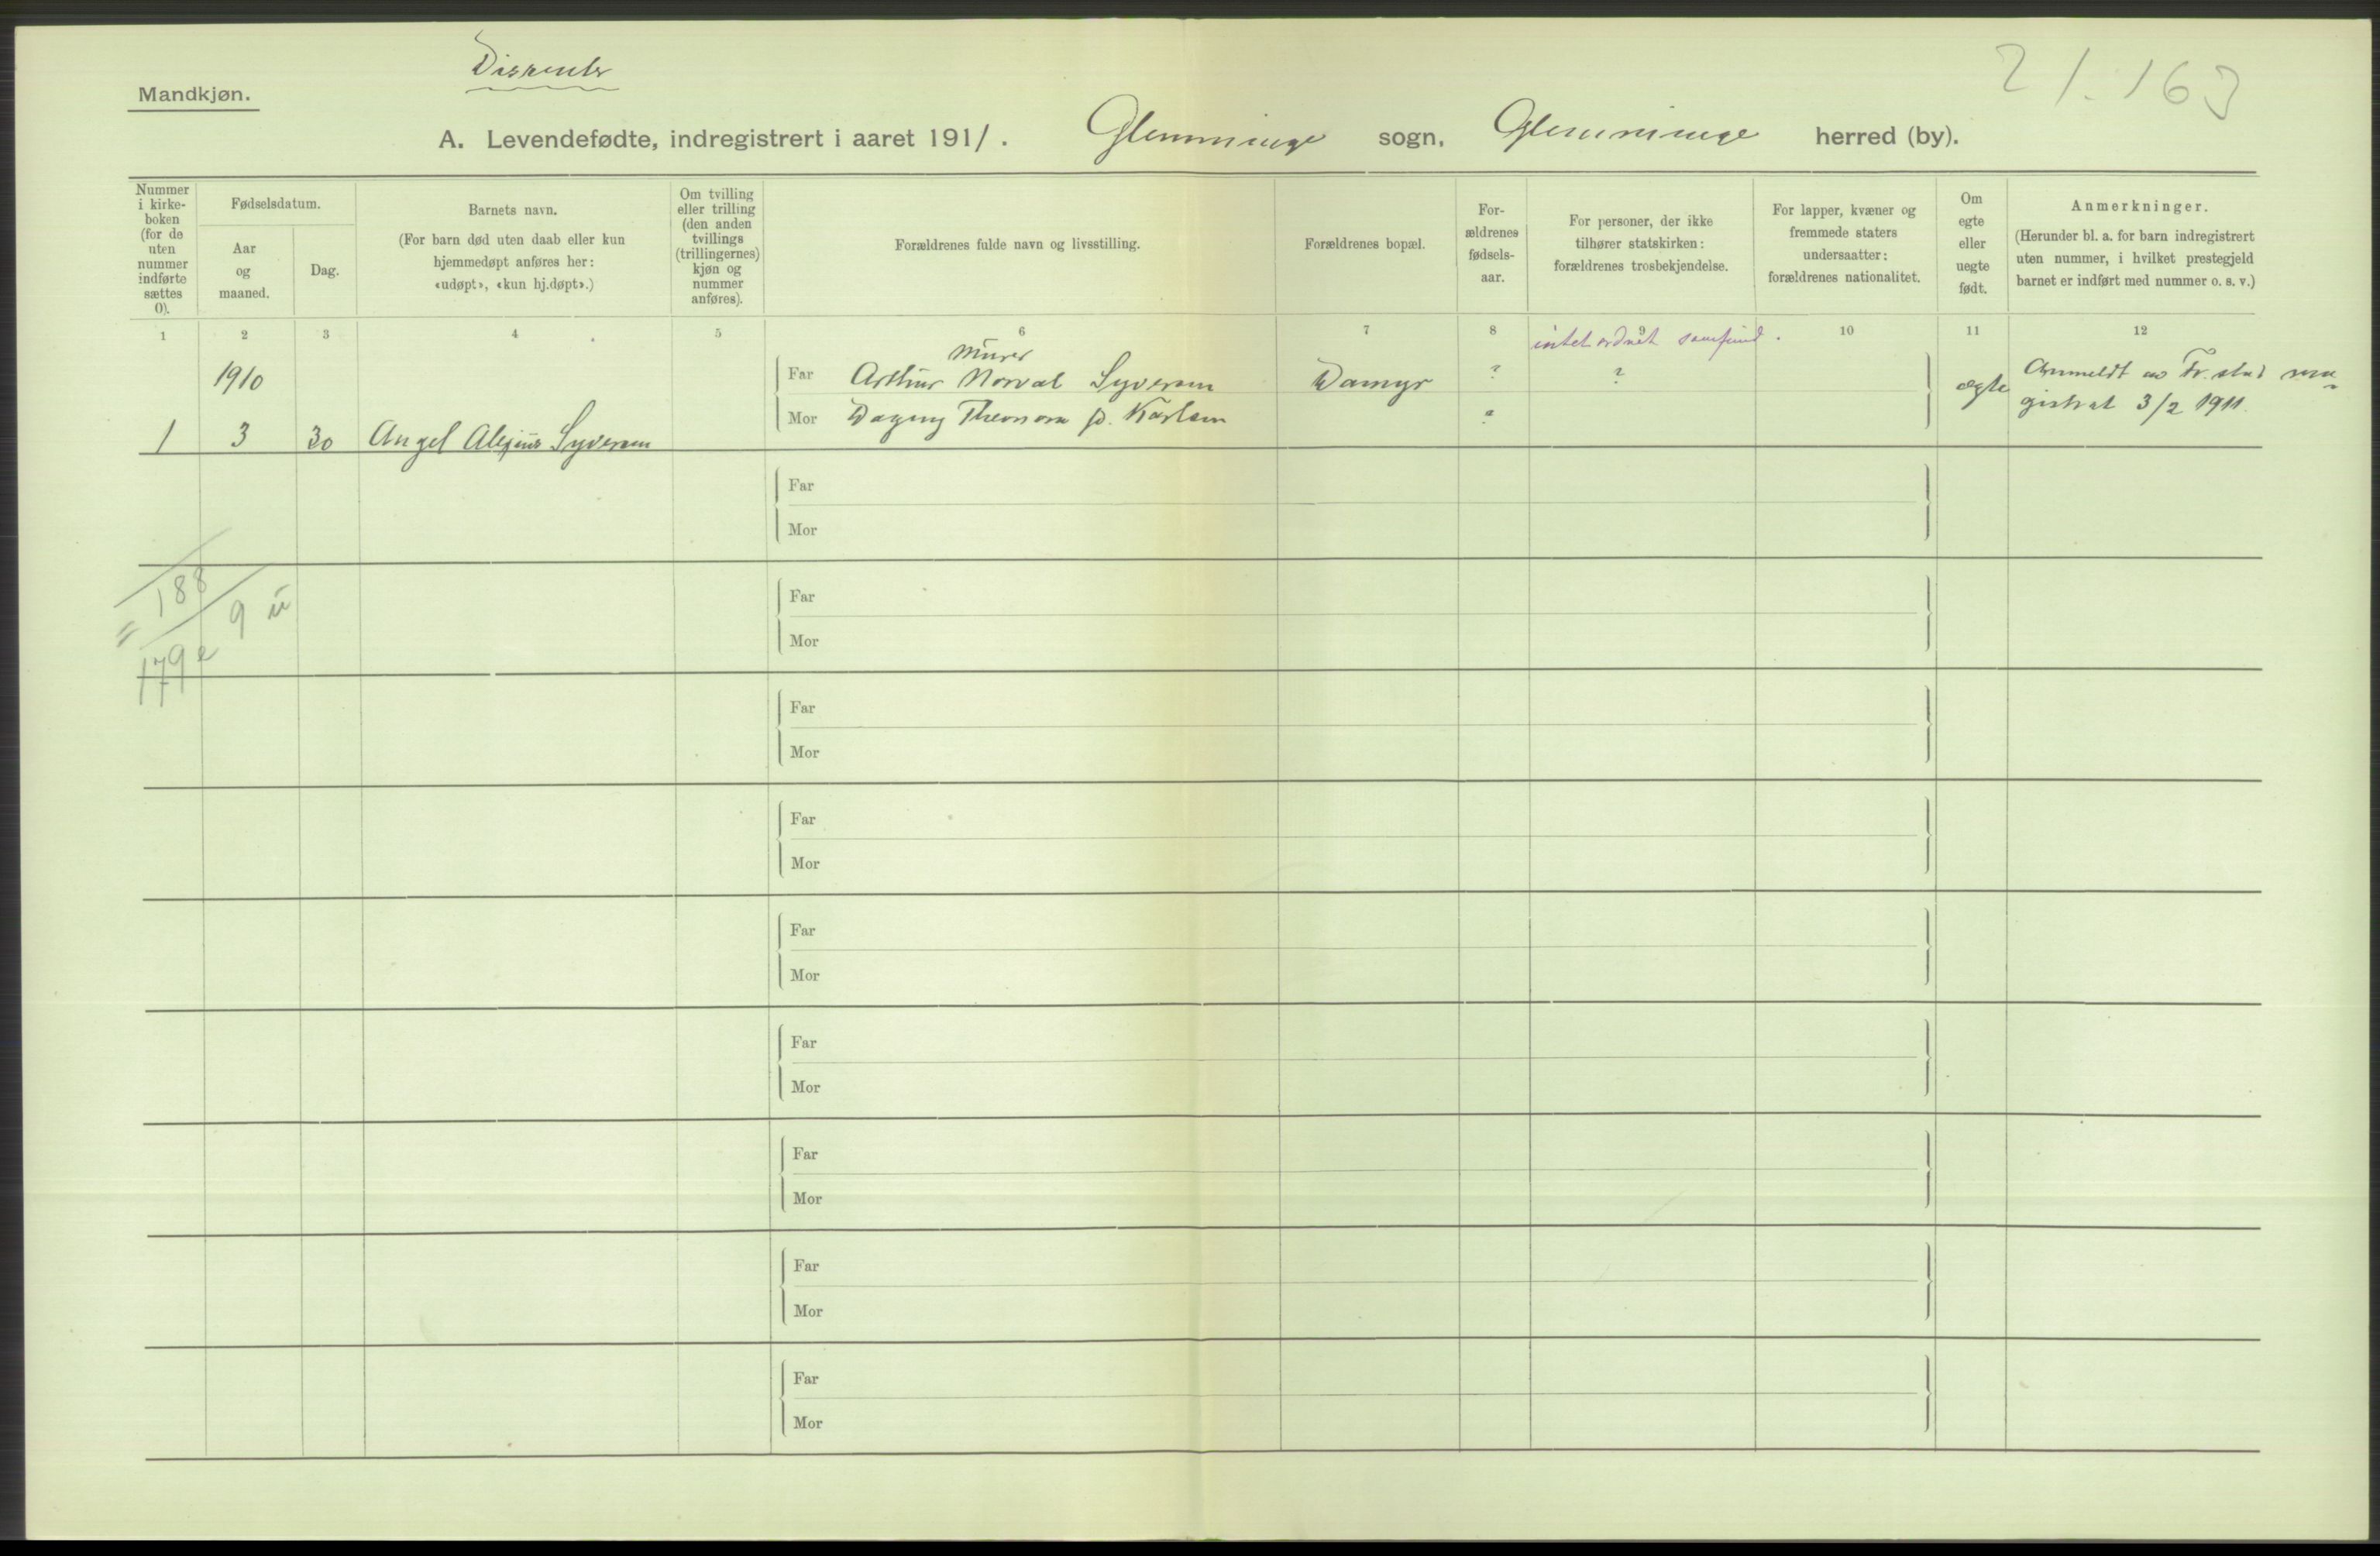 Mandkjøn.
Dissenter
21.163
A. Levendefødte, indregistrert i aaret 1911. Glemminge sogn, Glemminge herred (by).
Nummer i kirke-boken (for de uten nummer indførte sættes 0).
Fødselsdatum.
Aar og maaned.
Dag.
Barnets navn.
(For barn død uten daab eller kun hjemmedøpt anføres her: «udøpt», «kun hj.døpt».)
Om tvilling eller trilling (den anden tvillings (trillingernes) kjøn og nummer anføres).
Forældrenes fulde navn og livsstilling.
Forældrenes bopæl.
For-ældrenes fødsels-aar.
For personer, der ikke tilhører statskirken: forældrenes trosbekjendelse.
For lapper, kvæner og fremmede staters undersaatter: forældrenes nationalitet.
Om egte eller uegte født.
Anmerkninger.
(Herunder bl. a. for barn indregistrert uten nummer, i hvilket prestegjeld barnet er indført med nummer o. s. v.)
1 2 3 4 5 6 7 8 9 10 11 12
intet ordnet samfund.
Murer
1910 Far Arthur Norval Syversen Damyr ? ? ægte Anmeldt av Fr.stad ma-
Mor Dagny Theonora f. Karlsen " gistrat 3/2 1911.
1 3 30 Angel Syversen
Far
Mor
188
9 u
= 179 e
Far
Mor
Far
Mor
Far
Mor
Far
Mor
Far
Mor
Far
Mor
Far
Mor
Far
Mor